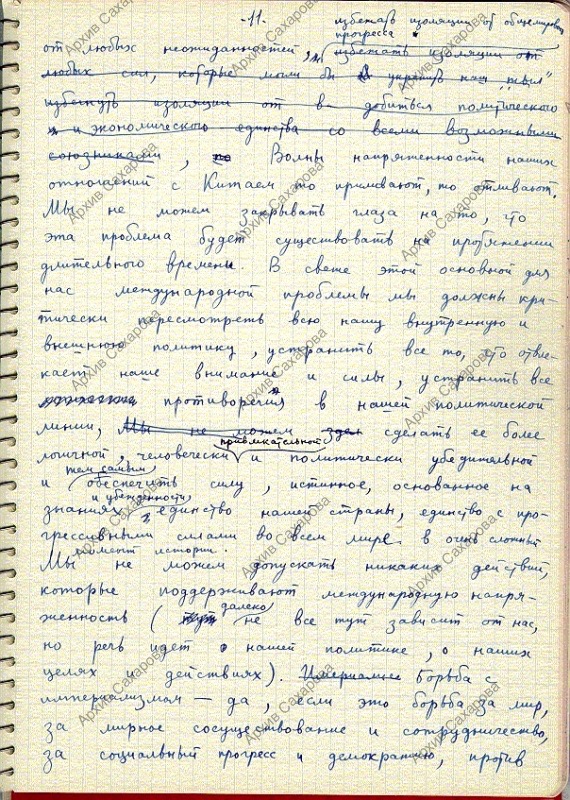 -11.
избежать изоляции от общемирового
прогресса
от любых неожиданностей, избежать изоляции от
любых сил, которые могли бы укрепить наш "тыл"
избегнуть изоляции от в добиться политического
и экономического единства со всеми возможными
союзниками, Волны напряженности наших
отношений с Китаем то приливают, то отливают.
Мы не можем закрывать глаза на то, что
эта проблема будет существовать на протяжении
длительного времени. В свете этой основной для
нас международной проблемы мы должны кри-
тически пересмотреть всю нашу внутреннюю и
внешнюю политику, устранить все то, что отвле-
кает наше внимание и силы, устранить все
противоречия в нашей политической
линии, Мы не можем сделать ее более
привлекательной
логичной, человечески и политически убедительной
тем самым
и обеспечить силу, истинное, основанное на
и убежденности
знаниях единство нашей страны, единство с про-
грессивными силами во всем мире в очень сложный
момент истории.
Мы не можем допускать никаких действий,
которые поддерживают международную напря-
далеко
женность (тут не все тут зависит от нас,
но речь идет о нашей политике, о наших
целях и действиях). Борьба с
империализмом — да, если это борьба за мир,
за мирное сосуществование и сотрудничество,
за социальный прогресс и демократию, против
Архив Сахарова
Архив Сахарова
Архив Сахарова
Архив Сахарова
Архив Сахарова
Архив Сахарова
Архив Сахарова
Архив Сахарова
Архив Сахарова
Архив Сахарова
Архив Сахарова
Архив Сахарова